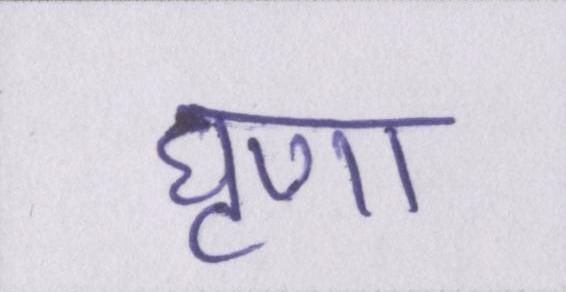 घृणा